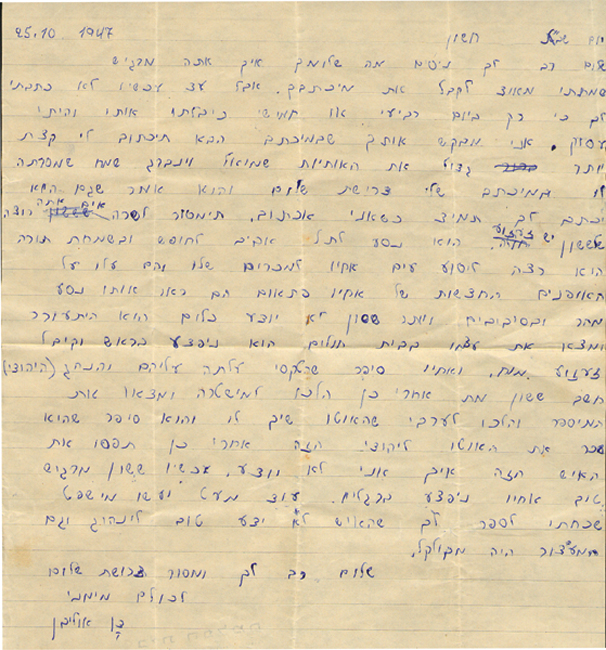 25.10 1947
יום שבת חשון
שלום רב לך ניסים מה שלומך איך אתה מרגיש
שמחתי מאוצ לקבל את מיכתבך. אבל עצ עכשיו לא כתבתי
לך כי רק ביום רביעי או חמישי קיבלתי אותו והיתי
עסוק. אני מבקש אותך שבמיכתב הבא תיכתוב לי קצת
יותר גדול את האותיות שמואל וינברג שמח שמסרתה
לו במיכתב שלי צרישת שלום והוא אמר שגם הוא
יכתב לך תמיצ כשאני אכתוב. תימסור לשרה אים אתה רוצה
לששון יש זעזוע הוא נסע לתל אביב לחופש ובשמחת תורה
הוא רצה ליסוע עים אחיו למכרים שלו והם עלו על
האופנים החצשות של אחיו פתאום הם ראו אותו נסע
מהר ובסיבובים ויותר ששון לא יוצע כלום הוא היתעורר
ומצאו את עצמו בבית חולים הוא ניפצע בראש וקיבל
זעזוע מוח. ואחיו סיפר שהטקסי עלתה עליהם והנהג (היהוצי)
חשב ששון מת אחרי כן הלכו למישטרה ומצאו את
המיספר והלכו לערבי שהאוטו שיך לו והוא סיפר שהוא
שכר את האוטו ליהוצי הזה אחרי כן תפסו את
האיש הזה איך אני לא יוצע. עכשיו ששון מרגיש
טוב אחיו ניפצע ברגלים. עוצ מעט יעשו מישפט
שכחתי לספר לך שהאיש לא יצע טוב לינהוג וגם
המעצור היה מקולקל.
שלום רב לך ומסור צרישת שלום
לכולם מימני